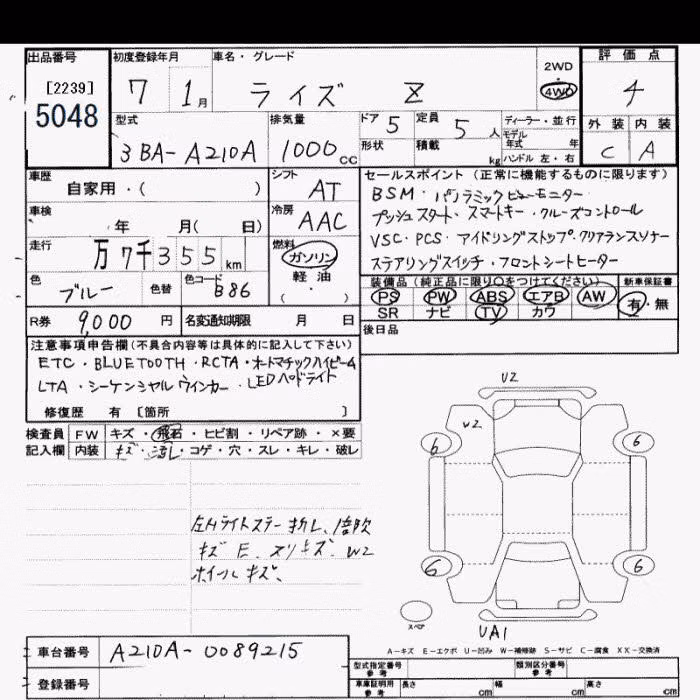 出品番号
[2239]
5048
初度登録年月
7 1月
車名・グレード
ライズ Z
2WD
・
4WD
評価点
4
外装 内装
C A
型式
3BA-A210A
排気量
1000cc
ドア 5
定員 5人
形状
積載 kg
ディーラー・並行
モデル
年式 年
ハンドル 左・右
車歴
自家用・( )
シフト
AT
車検
年 月( 日)
冷房
AAC
走行
万7千355km
燃料
ガソリン
軽油
・( )
色
ブルー
色替
色コード
B86
セールスポイント(正常に機能するものに限ります)
BSM・パノラミックビューモニター
プッシュスタート・スマートキー・クルーズコントロール
VSC・PCS・アイドリングストップ・クリアランスソナー
ステアリングスイッチ・フロントシートヒーター
装備品(純正品に限り○をつけてください)
PS PW ABS エアB AW
SR ナビ TV カワ
新車保証書
有・無
R券 9,000円
名変通知期限 月 日
後日品
注意事項申告欄(不具合内容等は具体的に記入して下さい)
ETC・BLUETOOTH・RCTA・オートマチックハイビーム
LTA・シーケンシャルウインカー・LEDヘッドライト
修復歴 有 [箇所 ]
検査員
記入欄
FW キズ・飛石・ヒビ割・リペア跡・×要
内装 キズ・汚れ・コゲ・穴・スレ・キレ・破レ
左Hライトステー折レ、
キズE、スリキズ、W2
ホイールキズ、
U2
W2
6 6
6 6
スペア
UA1
A-キズ E-エクボ U-凹み W-補修跡 S-サビ C-腐食 XX-交換済
車台番号 A210A-0089215
登録番号
型式指定番号
参考
類別区分番号
参考
車庫証明用
参考
長さ cm 幅 cm 高さ cm